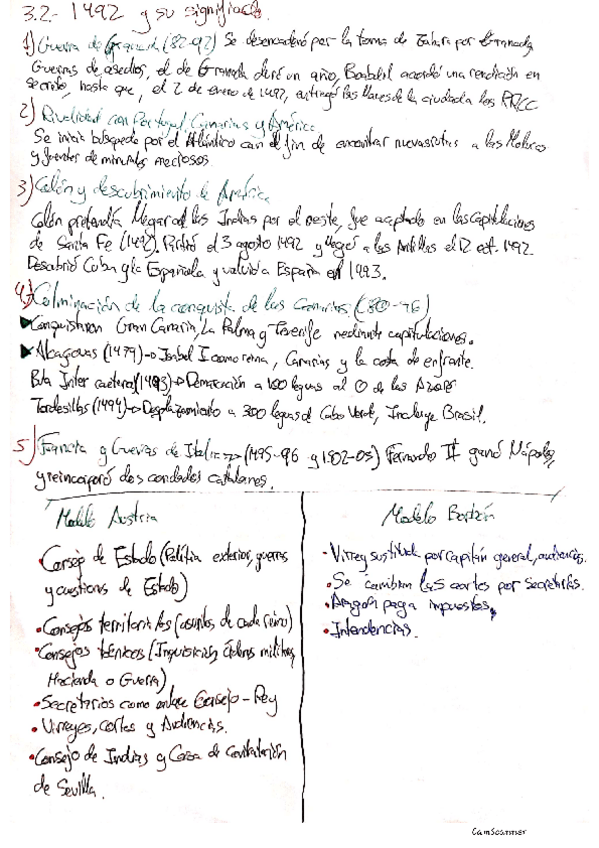 3.2- 1492 y su significado.
1) Guerra de Granada (82-92) Se desencadenó por la toma de Zahara por Granada
Guerras de asedios, el de Granada duró un año, Boabdil acordó una rendición en
secreto, hasta que, el 2 de enero de 1492, entregó las llaves de la ciudad a los RRCC
2) Rivalidad con Portugal Canarias y América
Se inicia búsqueda por el Atlántico con el fin de encontrar nuevas rutas a las Molucas
y fuentes de minerales preciosos.
3) Colón y descubrimiento de América
Colón pretendía llegar a las Indias por el oeste, fue aceptado en las Capitulaciones
de Santa Fe (1492). Partió el 3 agosto 1492 y llegó a las Antillas el 12 oct. 1492.
Descubrió Cuba y la Española y volvió a España en 1493.
4) Culminación de la conquista de las Canarias (80-96)
Conquistaron Gran Canaria, La Palma y Tenerife mediante capitulaciones.
Alcaçovas (1479)→ Isabel I como reina, Canarias y la costa de enfrente.
Bula Inter caetera (1493)→ Demarcación a 100 leguas al O de las Azores
Tordesillas (1494)→ Desplazamiento a 300 leguas de Cabo Verde, Incluye Brasil.
5) Francia y Guerras de Italia → (1495-96 y 1502-03) Fernando II ganó Nápoles,
y reincorporó dos condados catalanes.
Modelo Austria
• Consejo de Estado (Política exterior, guerras
y cuestiones de Estado)
• Consejos territoriales (asuntos de cada reino)
• Consejos técnicos (Inquisición, órdenes militares,
Hacienda o Guerra)
• Secretarios como enlace Consejo - Rey
• Virreyes, cortes y Audiencias.
• Consejo de Indias y Casa de Contratación
de Sevilla.
Modelo Borbón
• Virrey sustituido por capitán general, audiencias.
• Se cambian las cortes por secretarías.
• Aragón paga impuestos.
• Intendencias.
CamScanner